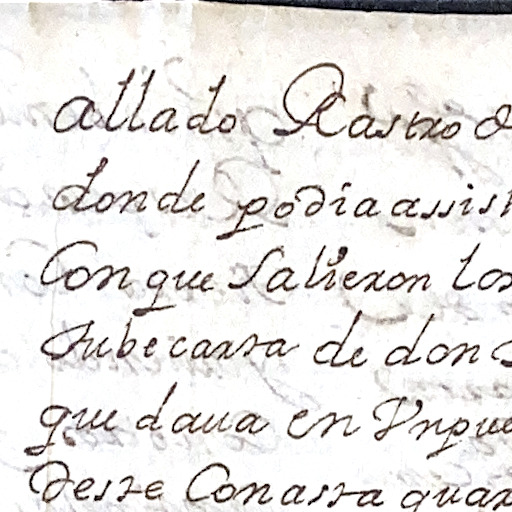 allado Rastro d
donde podia assist
Con que Salieron los
tube carta de don
que daua en Vn pue
deste Con asta quar